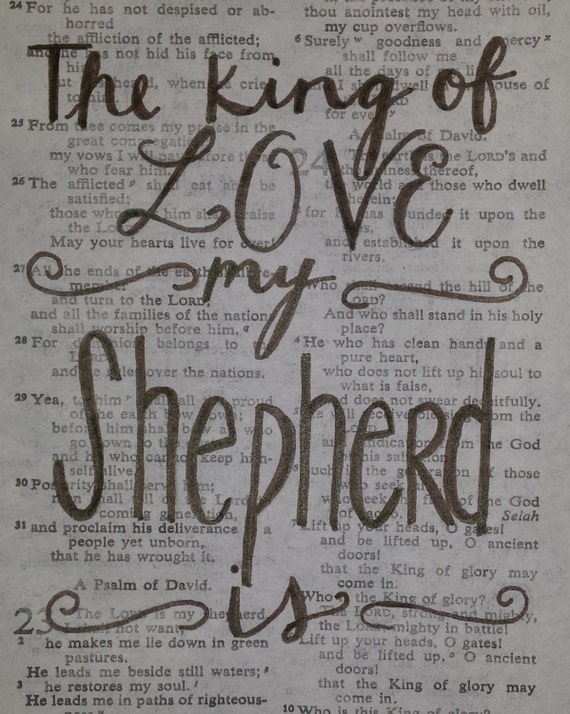 The King of
LOVE
my
Shepherd
is
24 For he has not despised or ab-
horred
the affliction of the afflicted;
and he has not hid his face from
him,
but has heard, when he cried
to him.
25 From thee comes my praise in the
great congregation;
my vows I will pay before those
who fear him.
26 The afflicted shall eat and be
satisfied;
those who seek him shall praise
the LORD!
May your hearts live for ever!
27 All the ends of the earth shall re-
member
and turn to the LORD;
and all the families of the nations
shall worship before him.
28 For dominion belongs to the
LORD,
and he rules over the nations.
29 Yea, to him shall all the proud
of the earth bow down;
before him shall bow all who
go down to the dust,
and he who cannot keep him-
self alive.
30 Posterity shall serve him;
men shall tell of the Lord
coming generation,
31 and proclaim his deliverance to a
people yet unborn,
that he has wrought it.
A Psalm of David.
23 The LORD is my shepherd,
I shall not want;
2 he makes me lie down in green
pastures.
He leads me beside still waters;
3 he restores my soul.
He leads me in paths of righteous-
thou anointest my head with oil,
my cup overflows.
6 Surely goodness and mercy
shall follow me
all the days of my life;
and I shall dwell in the house of
for ever.
A Psalm of David.
24 The earth is the LORD's and
the fulness thereof,
the world and those who dwell
therein;
for he has founded it upon the
seas,
and established it upon the
rivers.
Who shall ascend the hill of the
LORD?
And who shall stand in his holy
place?
4 He who has clean hands and a
pure heart,
who does not lift up his soul to
what is false,
and does not swear deceitfully.
He will receive blessing from the
LORD,
and vindication from the God
of his salvation.
Such is the generation of those
who seek him,
who seek the face of the God
of Jacob. Selah
7 Lift up your heads, O gates!
and be lifted up, O ancient
doors!
that the King of glory may
come in.
Who is the King of glory?
The LORD, strong and mighty,
the LORD, mighty in battle!
Lift up your heads, O gates!
and be lifted up, O ancient
doors!
that the King of glory may
come in.
10 Who is this King of glory?